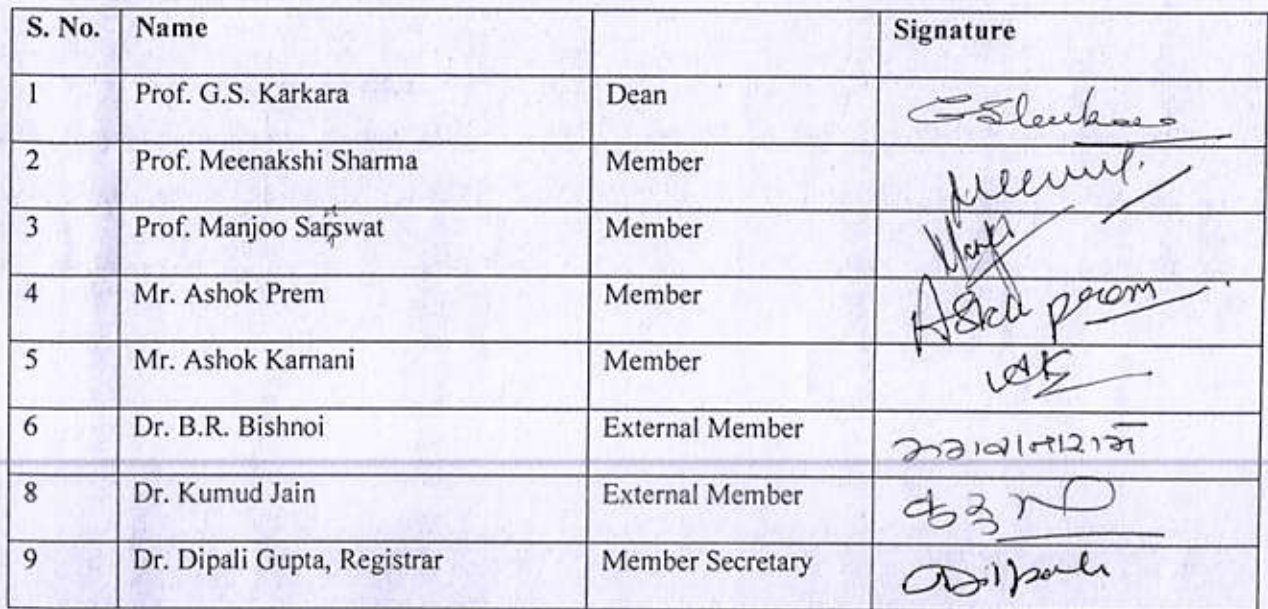 S. No. Name Signature
1 Prof. G.S. Karkara Dean
2 Prof. Meenakshi Sharma Member
3 Prof. Manjoo Sarswat Member
4 Mr. Ashok Prem Member Ashok Prem
5 Mr. Ashok Karnani Member AK
6 Dr. B.R. Bishnoi External Member
8 Dr. Kumud Jain External Member
9 Dr. Dipali Gupta, Registrar Member Secretary Dipali